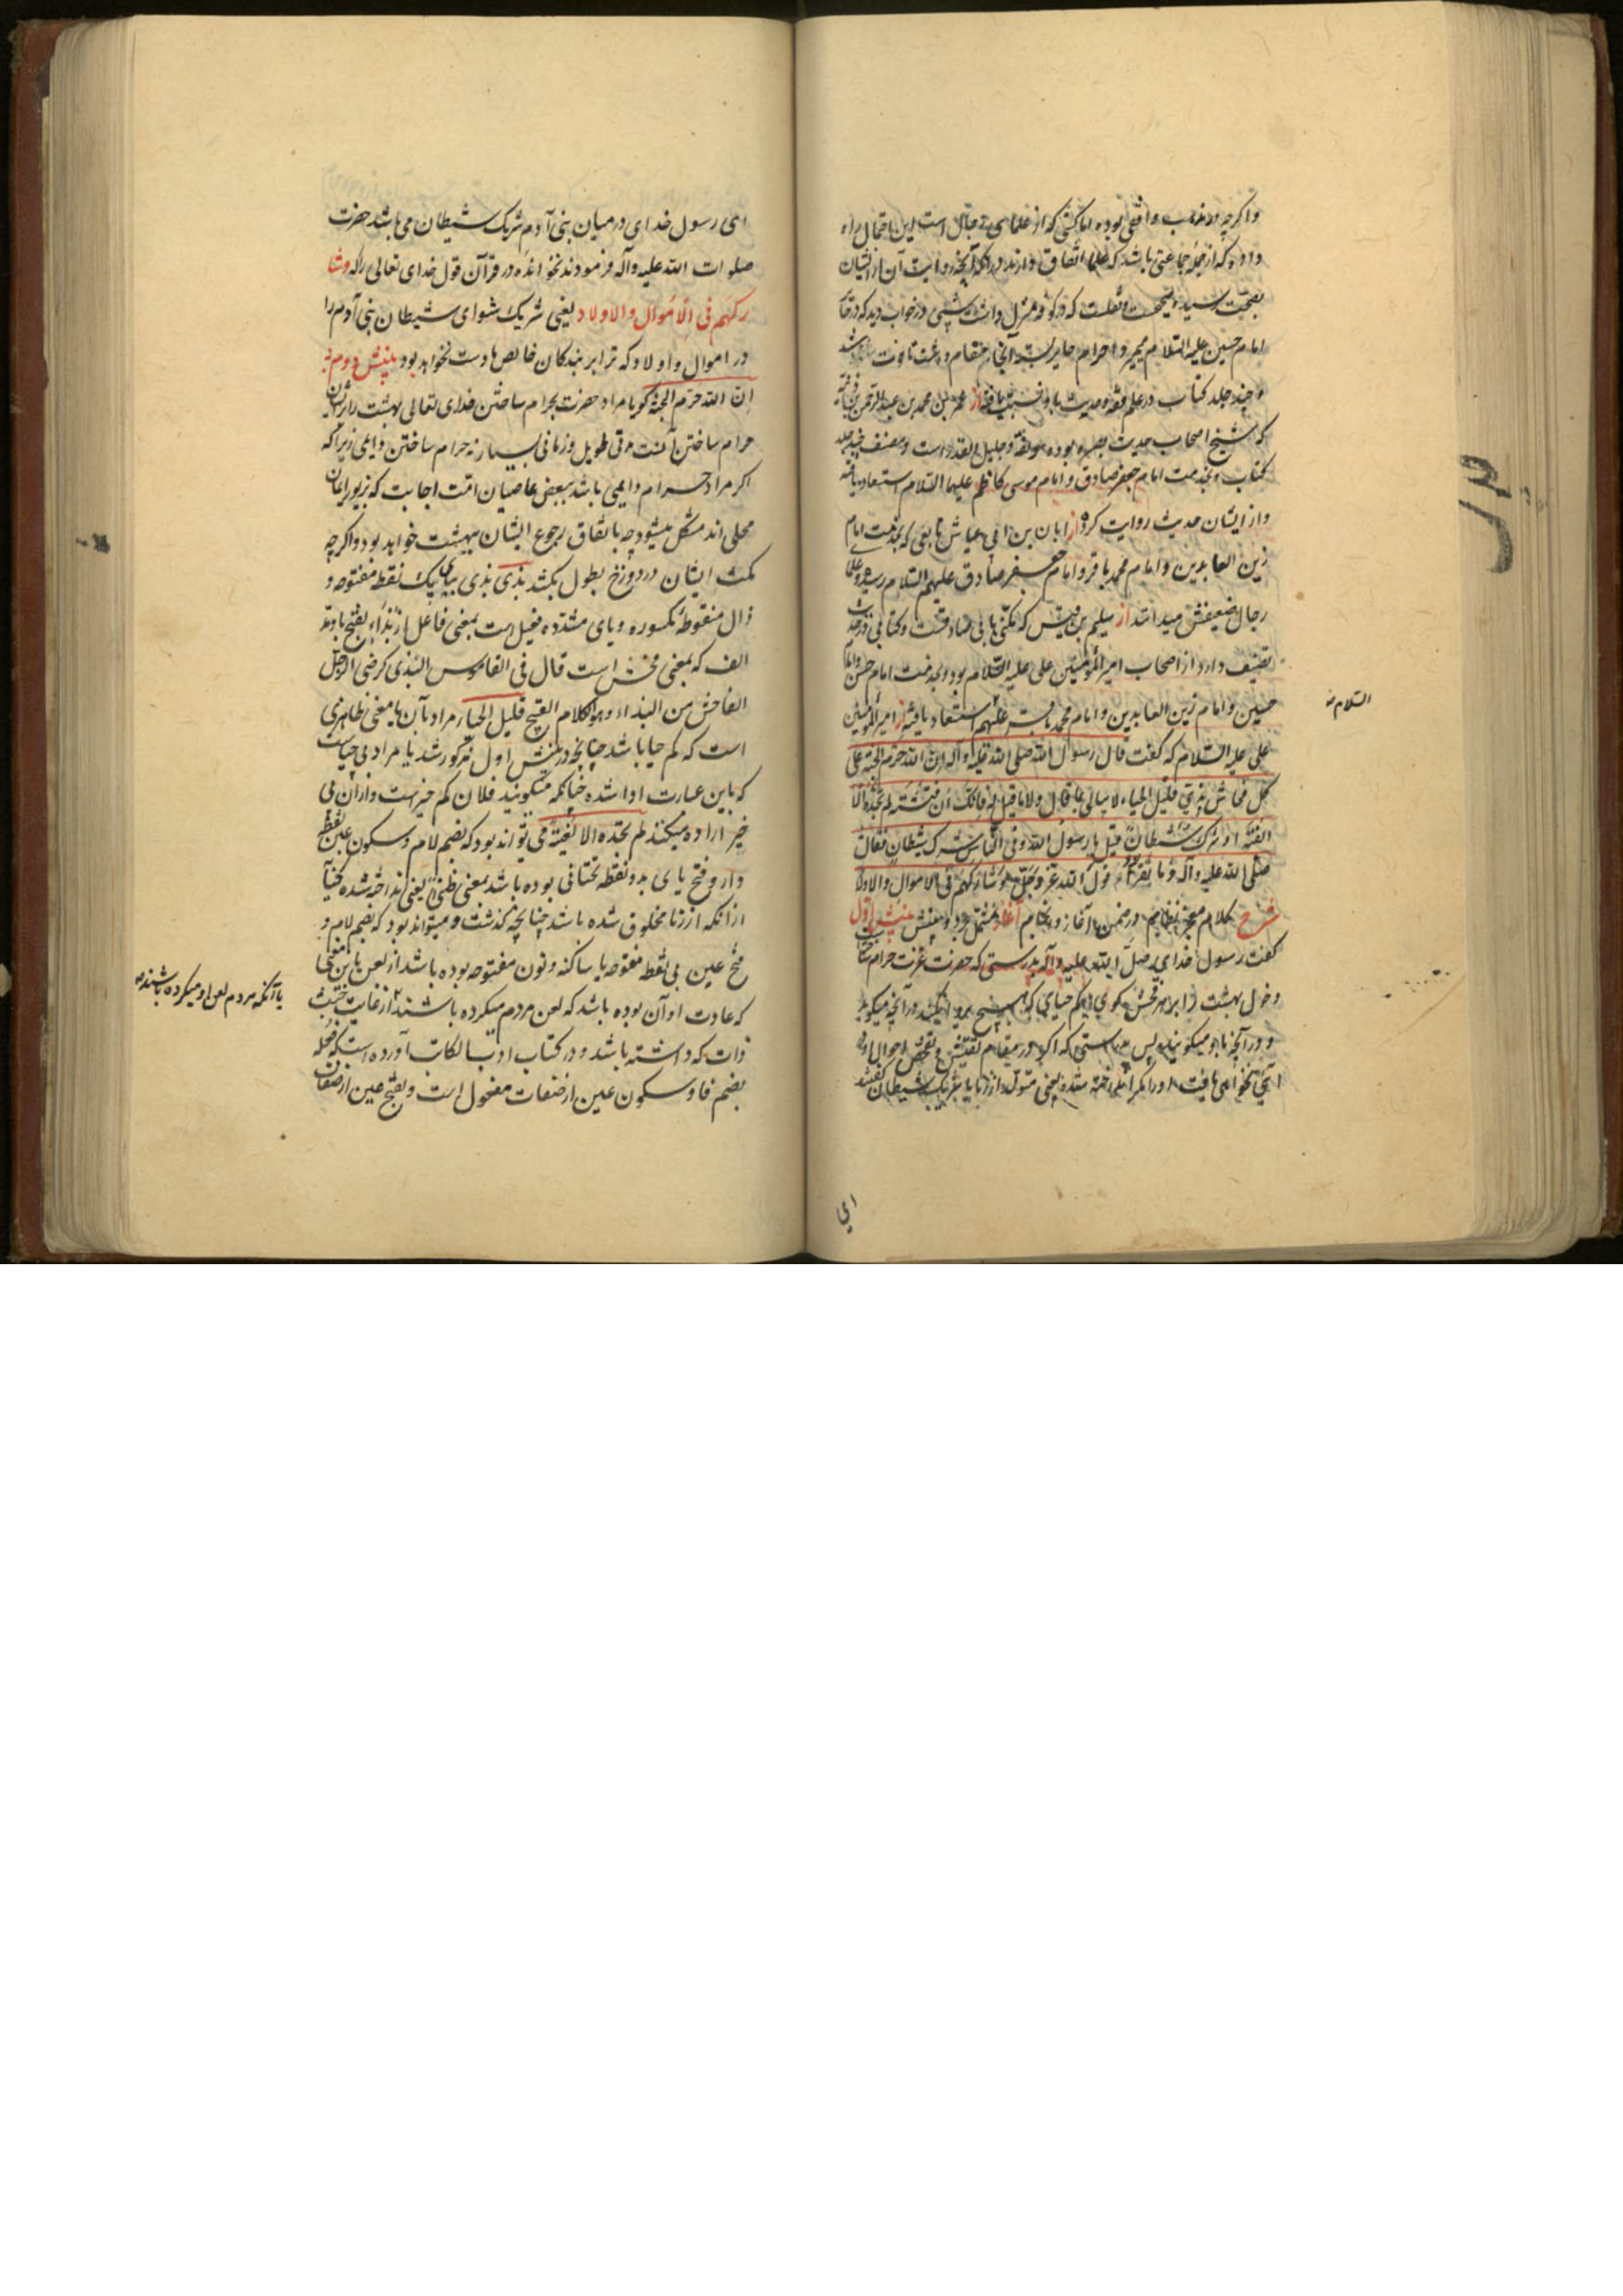 واکرچه در مذهب واقفی بوده اما کشی که از علمای رجال است این احتمال راه
داده که از جمله جماعتی باشد که علما اتفاق دارند در آنکه آنچه روایت آن از ایشان
بصحت رسیده صحیحست نقلست که در کوفه منزل داشت شبی در خواب دید که در حایر
امام حسین علیه السلام میمیرد احرام حایر بسته آنجا مقام داشت تا فوت شد
و چند جلد کتاب در علم فقه و حدیث باو نسبت یافته از عمر بن محمد بن عبد الرحمن بن اذینه
که شیخ اصحاب حدیث بصره بوده موثقه و جلیل القدر است و مصنف چند جلد
کتاب و بخدمت امام جعفر صادق و امام موسی کاظم علیهما السلام استسعاد یافته
و از ایشان حدیث روایت کرده از ابان بن ابی عیاش تابعی که بخدمت امام
زین العابدین و امام محمد باقر و امام جعفر صادق علیهم السلام رسیده و علمای
رجال ضعیفش میدانند از سلیم بن قیس که مکنی بابی صادقست و کتابی در حدیث
تصنیف دارد از اصحاب امیر المؤمنین علی علیه السلام بود و بخدمت امام حسن و امام
حسین و امام زین العابدین و امام محمد باقر علیهم استسعاد یافته از امیر المؤمنین
السلام
علی علیه السلام که گفت قال رسول الله صلی الله علیه و آله ان الله حرم الجنة علی
کل فحاش بذی قلیل الحیاء لا یبالی بما قال ولا ما قیل له فانک ان فتشته لم تجده الا
لغیة او شرک شیطان قیل یا رسول الله وفی الناس شرک شیطان فقال
صلی الله علیه وآله وما یقرأ قول الله عز وجل وشارکهم فی الاموال والاولاد
شرح کلام معجز نظام در ضمن آغاز و انجام آغاز مشتمل بر دو منش منش اول
گفت رسول خدای صلی الله علیه و آله بدرستی که حضرت عزت حرام ساخت
دخول بهشت را بر هر فحش گوی کم حیای که
و در آنچه باو میگویند پس بدرستی که اگر در مقام تفتیش و تفحص احوال او
شریک شیطان گفتند
ای
ای رسول خدای در میان بنی آدم شریک شیطان می باشد حضرت
صلوات الله علیه وآله فرمودند نخوانده در قرآن قول خدای تعالی را که وشا
رکهم فی الاموال والاولاد یعنی شریک شو ای شیطان بنی آدم را
در اموال و اولاد که ترا بر بندگان خالص ما دست نخواهد بود منش دوم
ان الله حرم الجنة گویا مراد حضرت بحرام ساختن خدای تعالی بهشت را بر ایشان
حرام ساختن آنست مدتی طویل و زمانی بسیار نه حرام ساختن دایمی زیرا که
اگر مراد حرام دایمی باشد ببعضی عاصیان امت اجابت که بزیور ایمان
محلی اند مشکل میشود چه باتفاق رجوع ایشان ببهشت خواهد بود و اگر چه
مکث ایشان در دوزخ بطول بکشد بذی بذی ببای یک نقطه مفتوحه و
ذال منقوطه مکسوره و یای مشدده فعیل است بمعنی فاعل از بذاء بفتح با و مد
الف که بمعنی فحش است قال فی القاموس البذی کرضی الرجل
الفاحش من البذاء وهو الکلام القبیح قلیل الحیاء مراد بآن یا معنی ظاهری
است که کم حیا باشد چنانچه در منش اول مذکور شد یا مراد بی حیاست
که باین عبارت ادا شده چنانکه میگویند فلان کم خیرست و از آن بی
خیر اراده میکنند لم تجده الا لغیة می تواند بود که بضم لام و سکون عین نقطه
دار و فتح یای بدو نقطه تحتانی بوده باشد بمعنی ملغی یعنی انداخته شده کنایه
از آنکه از زنا مخلوق شده باشد چنانچه گذشت و میتواند بود که بضم لام و
فتح عین بی نقطه مفتوحه یا ساکنه و نون مفتوحه بوده باشد از لعن باین معنی
که عادت او آن بوده باشد که لعن مردم میکرده باشند از غایت خبث
یا آنکه مردم لعن او میکرده باشند
ذات که داشته باشد و در کتاب ادب الکاتب آورده است که فعله
بضم فا و سکون عین از صفات مفعول است و بفتح عین از صفات